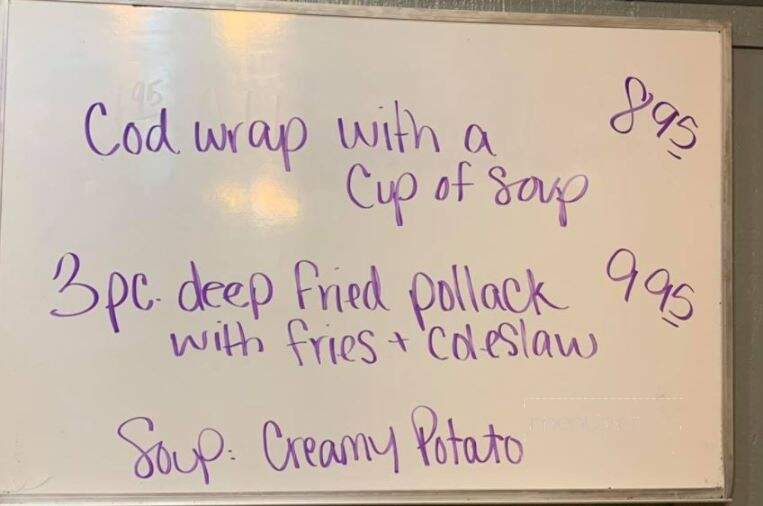 Cod wrap with a 8 95
Cup of Soup
3 pc. deep fried pollack 9 95
with fries + Coleslaw
Soup: Creamy Potato